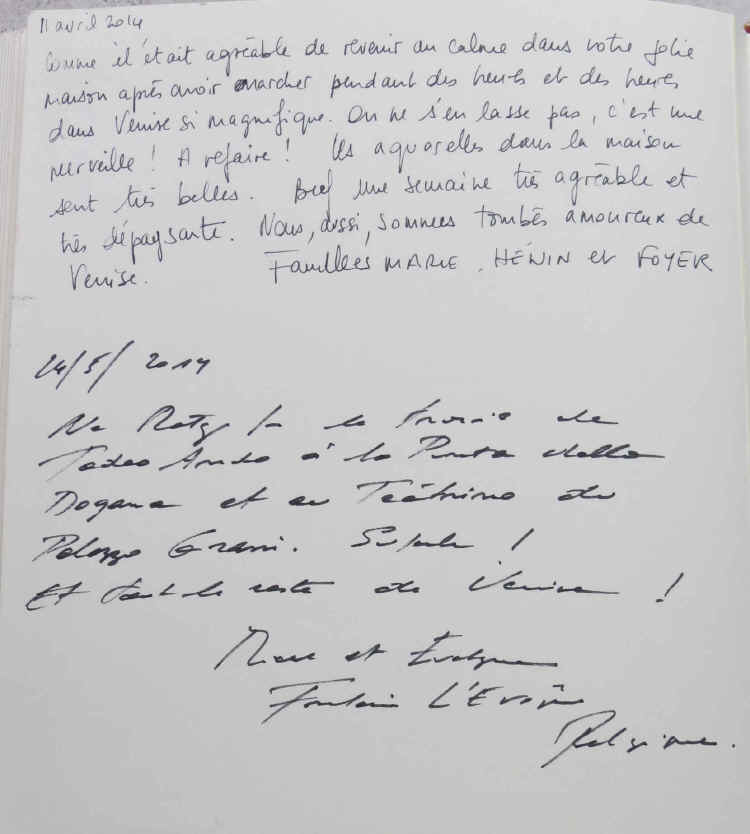 11 avril 2014
Comme il était agréable de revenir au calme dans votre jolie
maison après avoir marcher pendant des heures et des heures
dans Venise si magnifique. On ne s'en lasse pas, c'est une
merveille ! A refaire ! Les aquarelles dans la maison
sont très belles. Bref une semaine très agréable et
très dépaysante. Nous, aussi, sommes tombés amoureux de
Venise. Familles MARIE, HÉNIN et FOYER
24/5/2014
Ne Ratez le de
Tadao Ando à la Punta della
Dogana et au Teatrino du
Palazzo Grassi. Superbe !
Et tout le reste de Venise !
Marc et Evelyne
L'Evêque
Belgique.